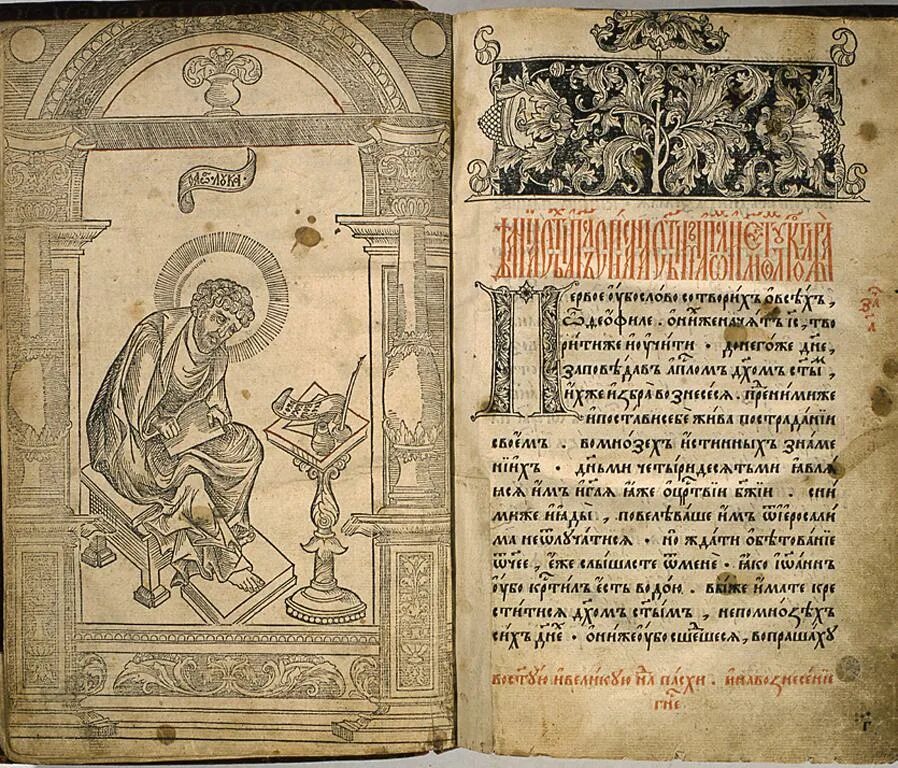 лука
Первое оубо слово сотворихъ ѡ всѣхъ,
ѽ де́офиле. ѡ нихже начатъ і҃с, тво
рити же и оучити · до него же дн҃е,
заповѣдавъ ап҃лом дх҃омъ ст҃ы,
ихже избра вознесеся. пре ними же
и постави себе жива по страданїи
своемъ. во мнозех истинныхъ знаме
нїихъ · дн҃ьми четыридесятьми ꙗвлѧ
ꙗсѧ имъ и гл҃ѧ ꙗже о ц҃рствїи бж҃їи. с ни
миже и ꙗды, повелѣваше имъ ѿ іеросали
ма не ѿлучатисѧ · но ждати обѣтованїе
ѿчее, еже слышасте ѿ мене · ꙗко їѡаннъ
оубо кр҃тилъ есть водою. вы же имате кре
ститисѧ дх҃омъ ст҃ымъ, не по мнозѣхъ
сихъ дн҃е · они же оубо сшедшесѧ, вопрашаху
во ст҃ую и великую н҃лѧ пасхи. и на вознесенїе
гн҃е